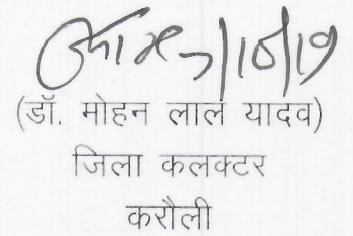 7/10/19
(डॉ. मोहन लाल यादव)
जिला कलक्टर
करौली